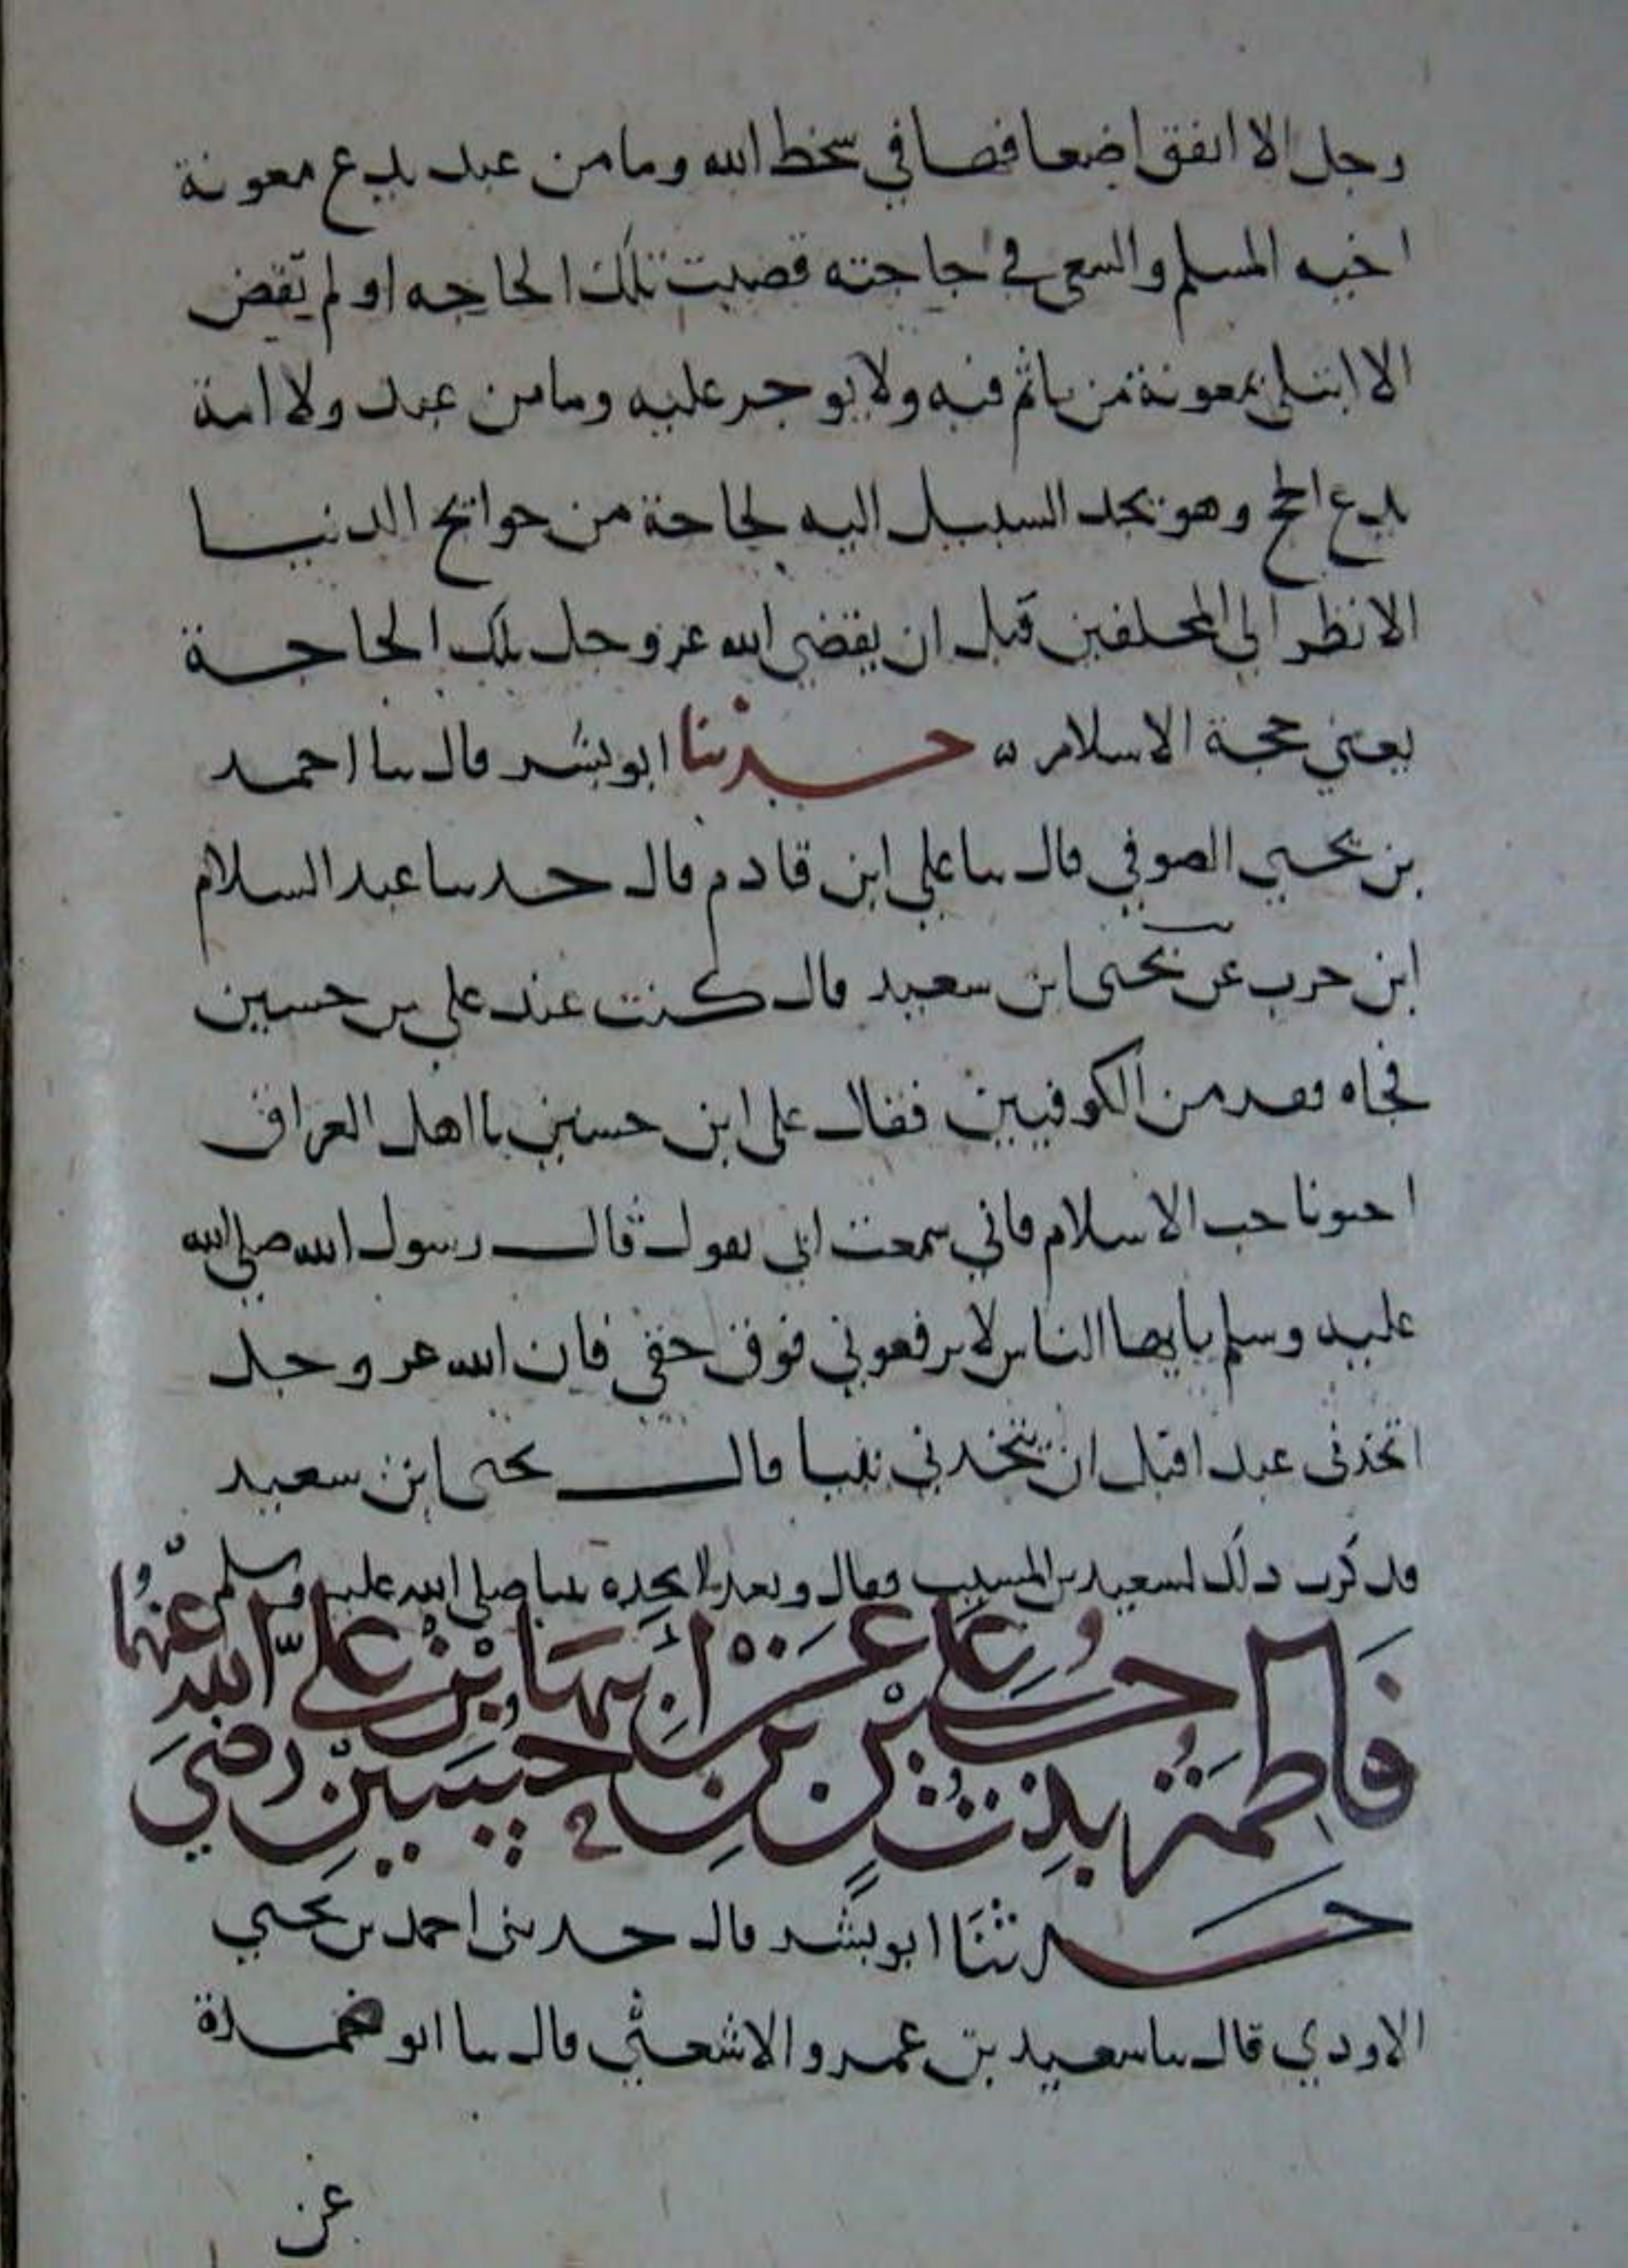 رجل الا انفق اضعافها في سخط الله وما من عبد يدع معونة
اخيه المسلم والسعي في حاجته قضيت تلك الحاجه او لم تقض
الا ابتلي بمعونة من ياثم فيه ولا يوجر عليه وما من عبد ولا امة
يدع الحج وهو يجد السبيل اليه لحاجة من حوايج الدنيا
الا نظر الى المحلقين قبل ان يقضي الله عز وجل تلك الحاجة
يعني حجة الاسلام ه حدثنا ابو بشر قال سا احمد
بن يحيى الصوفي قال سا علي ابن قادم قال حدسا عبد السلام
ابن حرب عن يحيى ابن سعيد قال كنت عند علي بن حسين
فجاه نفر من الكوفيين فقال علي ابن حسين يا اهل العراق
احبونا حب الاسلام فاني سمعت ابي يقول قال رسول الله صلى الله
عليه وسلم يا يها الناس لا ترفعوني فوق حقي فان الله عز وجل
اتخذني عبدا قبل ان يتخذني نبيا قال يحيى ابن سعيد
فذكرت ذلك لسعيد بن المسيب فقال وبعد ما اتخذه نبيا صلى الله عليه وسلم
فاطمة بنت حسين بن علي عن ابيها حسين بن علي رضي الله عنهما
حدثنا ابو بشر قال حدثني احمد بن يحيى
الاودي قال سا سعيد بن عمرو الاشعثي قال سا ابو ضمرة
عن